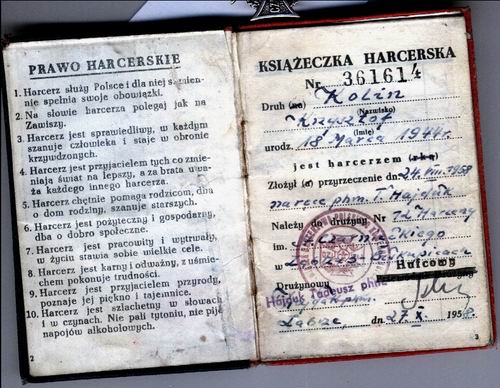 PRAWO HARCERSKIE
1. Harcerz służy Polsce i dla niej sumien-
nie spełnia swoje obowiązki.
2. Na słowie harcerza polegaj jak na
Zawiszy.
3. Harcerz jest sprawiedliwy, w każdym
szanuje człowieka i staje w obronie
krzywdzonych.
4. Harcerz jest przyjacielem tych co zmie-
niają świat na lepszy, a za brata uwa-
ża każdego innego harcerza.
5. Harcerz chętnie pomaga rodzicom, dba
o dom rodziny, szanuje starszych.
6. Harcerz jest pożyteczny i gospodarny,
dba o dobro społeczne.
7. Harcerz jest pracowity i wytrwały,
w życiu stawia sobie wielkie cele.
8. Harcerz jest karny i odważny, z uśmie-
chem pokonuje trudności.
9. Harcerz jest przyjacielem przyrody,
poznaje jej piękno i tajemnice.
10. Harcerz jest szlachetny w słowach
i w czynach. Nie pali tytoniu, nie pije
napojów alkoholowych.
2
KSIĄŻECZKA HARCERSKA
Nr 361614
Druh (na) Kolin
(Nazwisko)
Krzysztof
(Imię)
urodz. 18 Marca 1944 r.
jest harcerzem (rką)
Złożył (a) przyrzeczenie dn. 24.VIII.1958
na ręce phm. T. Hajdák
Należy do drużyny Nr 72 Harcerzy
im.
w
Hufcowy
Drużynowy
Hajdak Tadeusz phm
Zabrze, dn. 27 X. 1958.
3